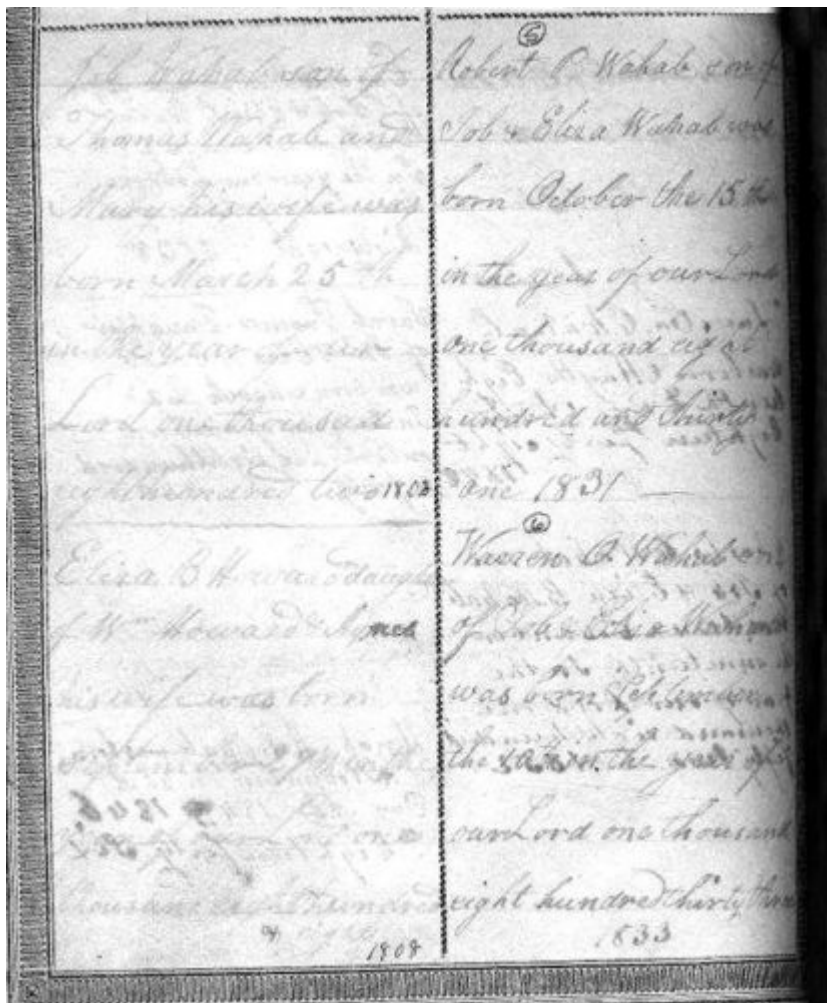 Job Wahab son of
Thomas Wahab and
Mary his wife was
born March 25th
in the year of our
Lord one thousand
eight hundred two 1802
Eliza B Howard daughter
of Wm Howard & Agnes
his wife was born
September 29th in the
one
thousand eight hundred
& eight
1808
5
Robert P. Wahab son of
Job & Eliza Wahab was
born October the 15th
in the year of our Lord
one thousand eight
hundred and thirty
one 1831
6
Warren O. Wahab son
of Job & Eliza Wahab
was born
the in the year of
our Lord one thousand
eight hundred thirty three
1833